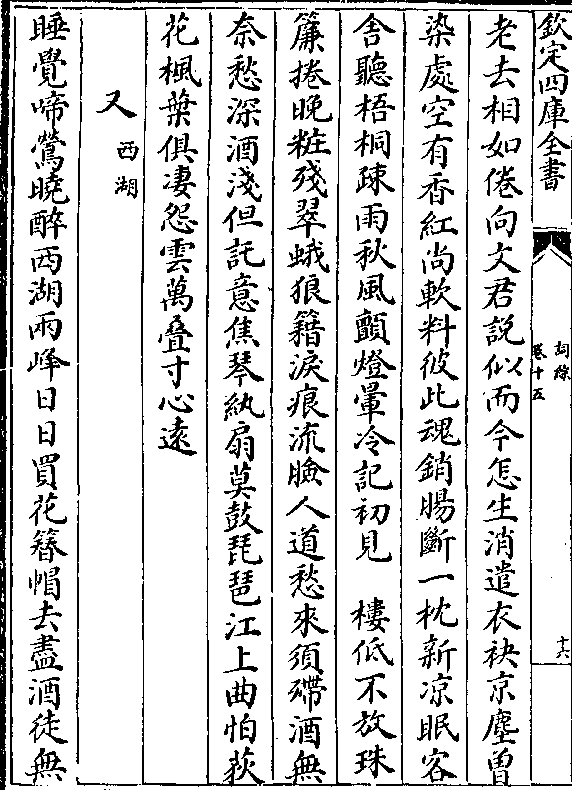 欽定四庫全書
詞綜
卷十五
十六
老去相如倦向文君說似而今怎生消遣衣袂京塵曾
染處空有香紅尚軟料彼此魂銷腸斷一枕新凉眠客
舍聽梧桐疎雨秋風顫燈暈冷記初見　樓低不放珠
簾捲晚粧殘翠蛾狼籍淚痕流臉人道愁來須殢酒無
奈愁深酒淺但託意焦琴紈扇莫鼓琵琶江上曲怕荻
花楓葉俱凄怨雲萬叠寸心遠
又西湖
睡覺啼鶯曉醉西湖兩峰日日買花簪帽去盡酒徒無